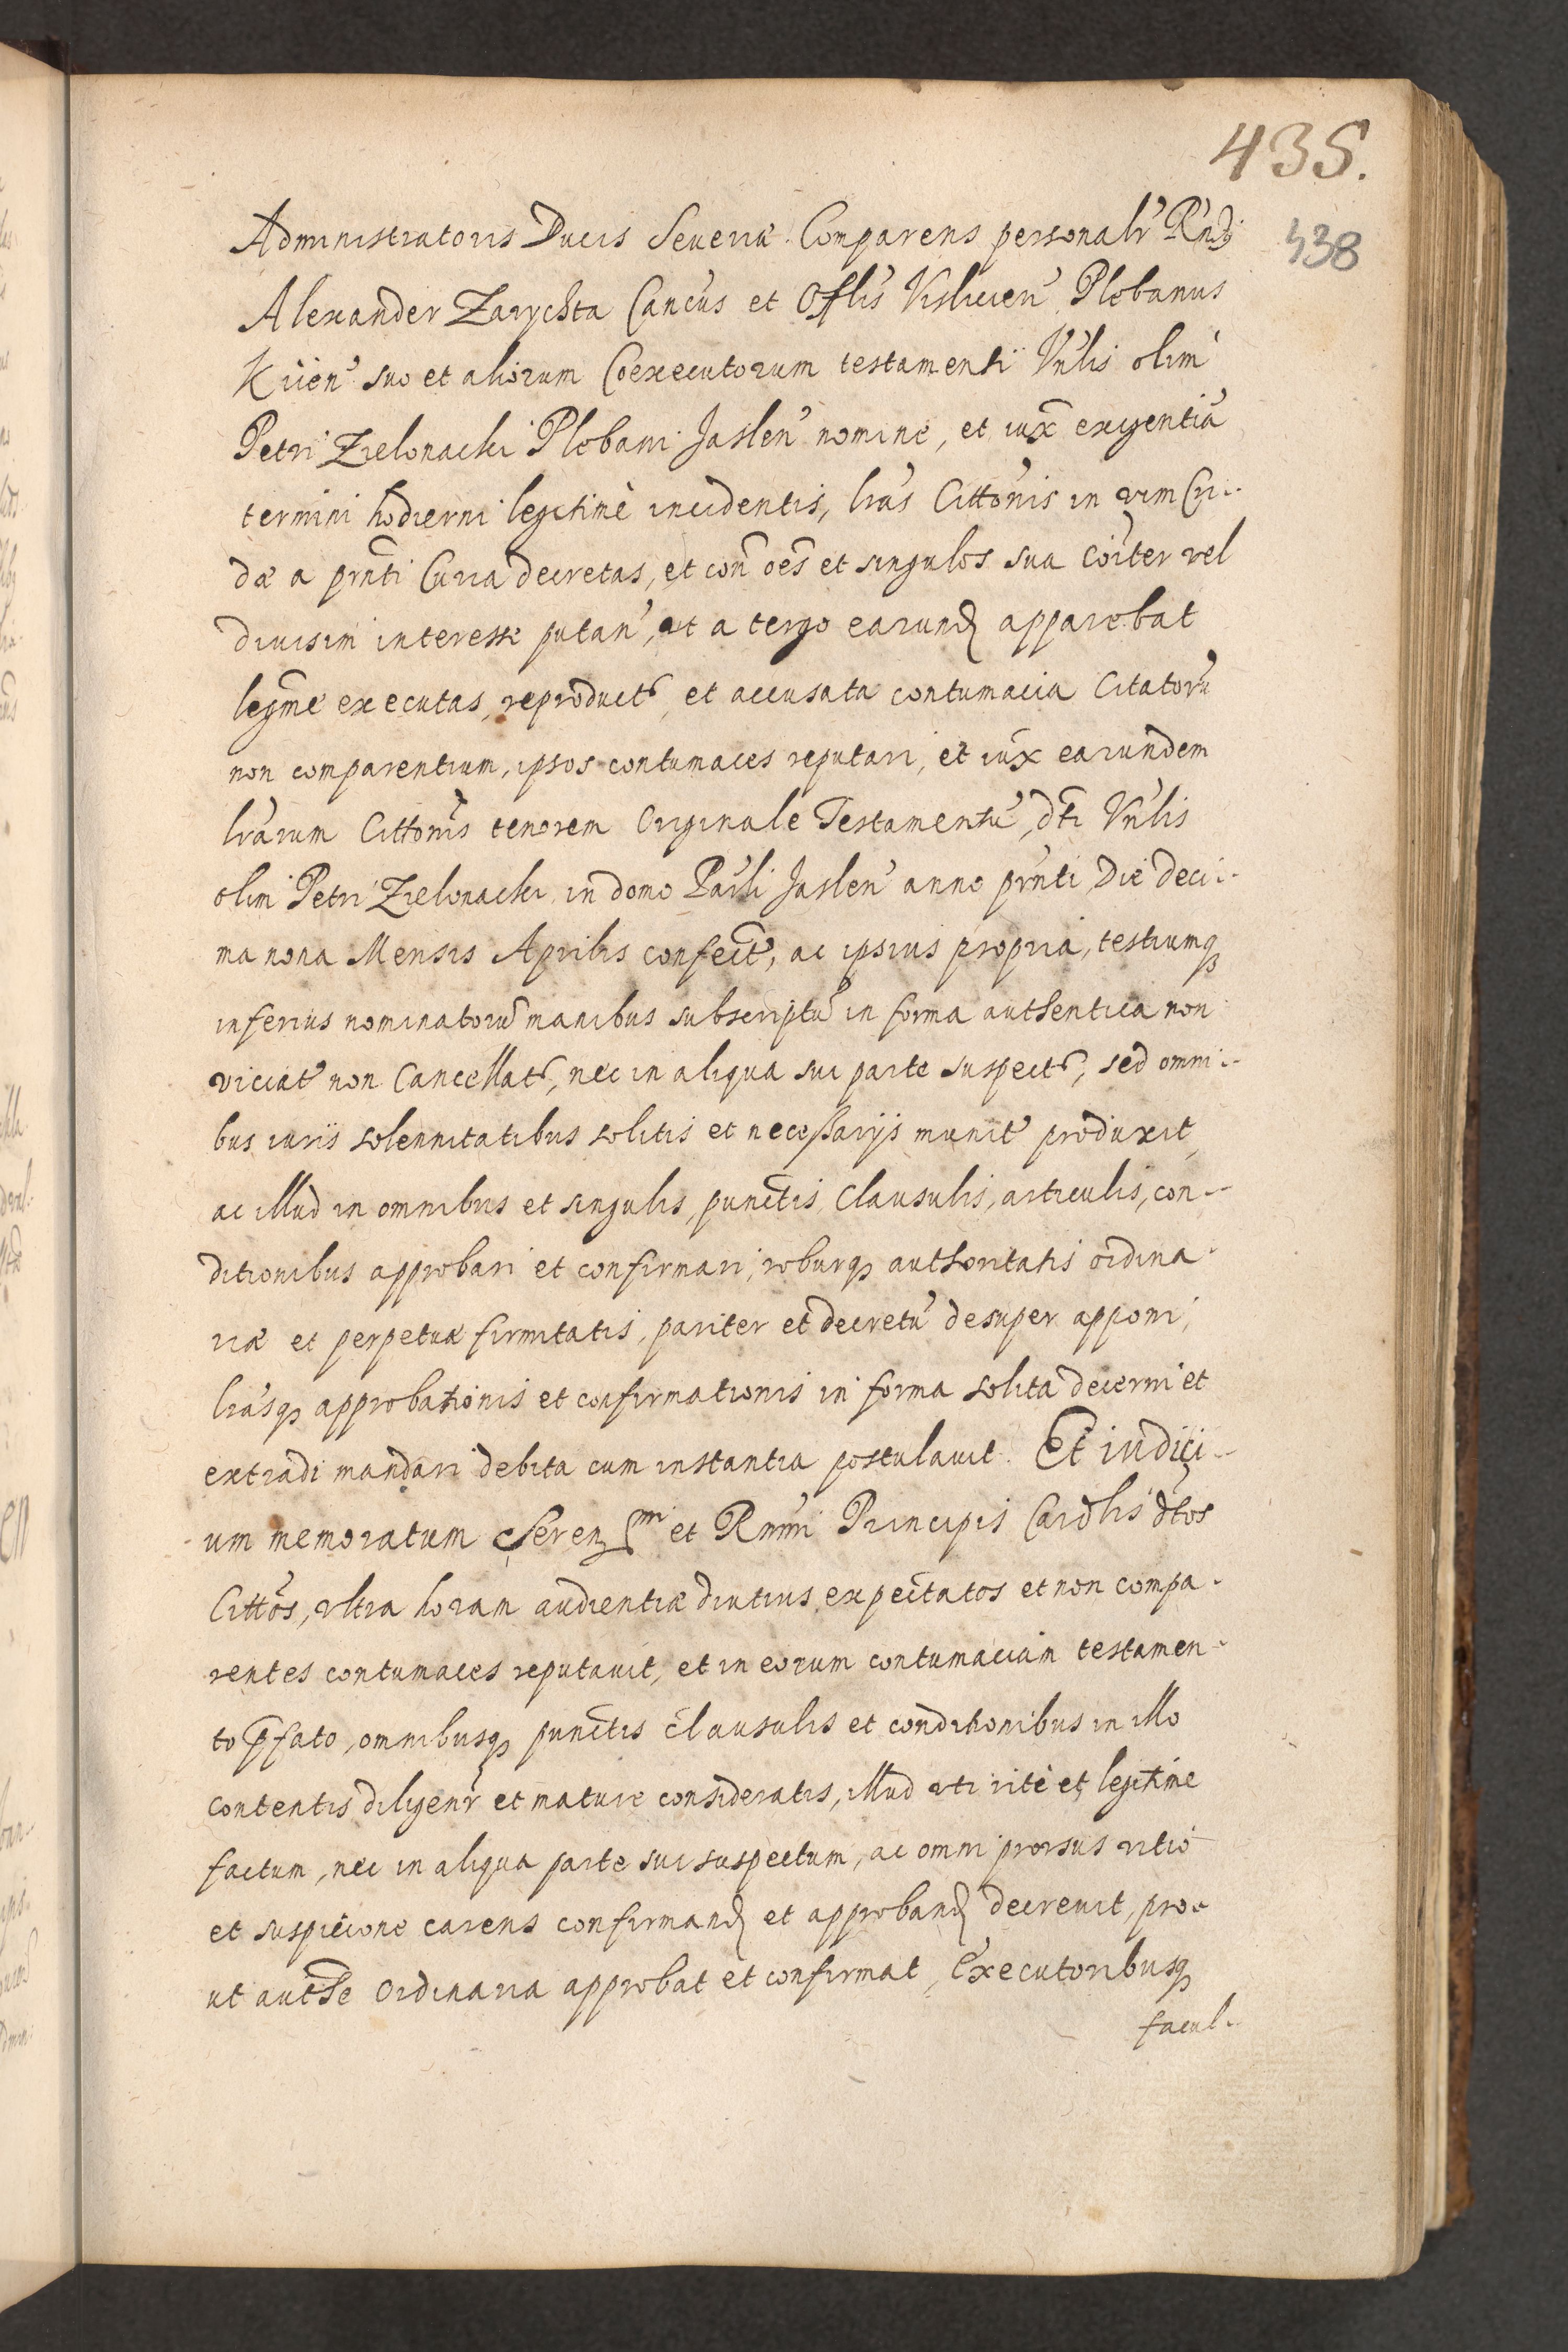 435.
438
Administratoris Ducis Seueriæ. Comparens personalr̃ Rñdꝰ
Alexander Zarychta Cancũs et Offlis Vislicien̓ Plebanus
Kiien̓ suo et aliorum Coexecutorum testamenti Vn̓lis olim
Petri Zielonacki Plebani Jaslen̓ nomine, et iux̃ exigentiã
termini hodierni legitimè incidentis, lr̃as Citton̓is in vim Cri-
dæ a prñti Curia decretas, et con̄ oẽs et singulos sua coĩter vel
diuisim interesse putan̓, ut a tergo earund̃ apparebat
legm̃e executas, reproduct̃, et accusata contumacia Citatorũ
non comparentium, ipsos contumaces reputari, et iux̃ earundem
lr̃arum Citton̓is tenorem Originale Testamentũ, dt̃i Vn̓lis
olim Petri Zielonacki in domo Pãrli Jaslen̓ anno prñti Die deci-
ma nona Mensis Aprilis confect̃, ac ipsius propria, testiumq̃
inferius nominatorũ manibus subscriptũ in forma authentica non
viciat̃ non Cancellat̃, nec in aliqua sui parte suspect̃, sed omni-
bus iuris solennitatibus solitis et necessarijs munit̃ produxit,
ac illud in omnibus et singulis, punctis, Clausulis, articulis, con-
ditionibus approbari et confirmari, roburq̃ authoritatis ordina-
riæ et perpetuæ firmitatis, pariter et decretũ desuper apponi,
lr̃asq̃ approbationis et confirmationis in forma solita decerni et
extradi mandari debita cum instantia postulauit. Et iudici-
um memoratum Serenss̃mi et Rmm̃i Principis Cardlis dt̃os
Cittõs, vltra horam audientiæ diutius expectatos et non compa-
rentes contumaces reputauit, et in eorum contumaciam testamen-
to p̃fato, omnibusq̃ punctis clausulis et conditionibus in illo
contentis diligenr̃ et mature consideratis, illud vti ritè et legitime
factum, nec in aliqua parte sui suspectum, ac omni prorsus vitio
et suspicione carens confirmand̃ et approband̃ decreuit, pro-
ut autht̃e ordinaria approbat et confirmat, Executoribusq̃
facul-